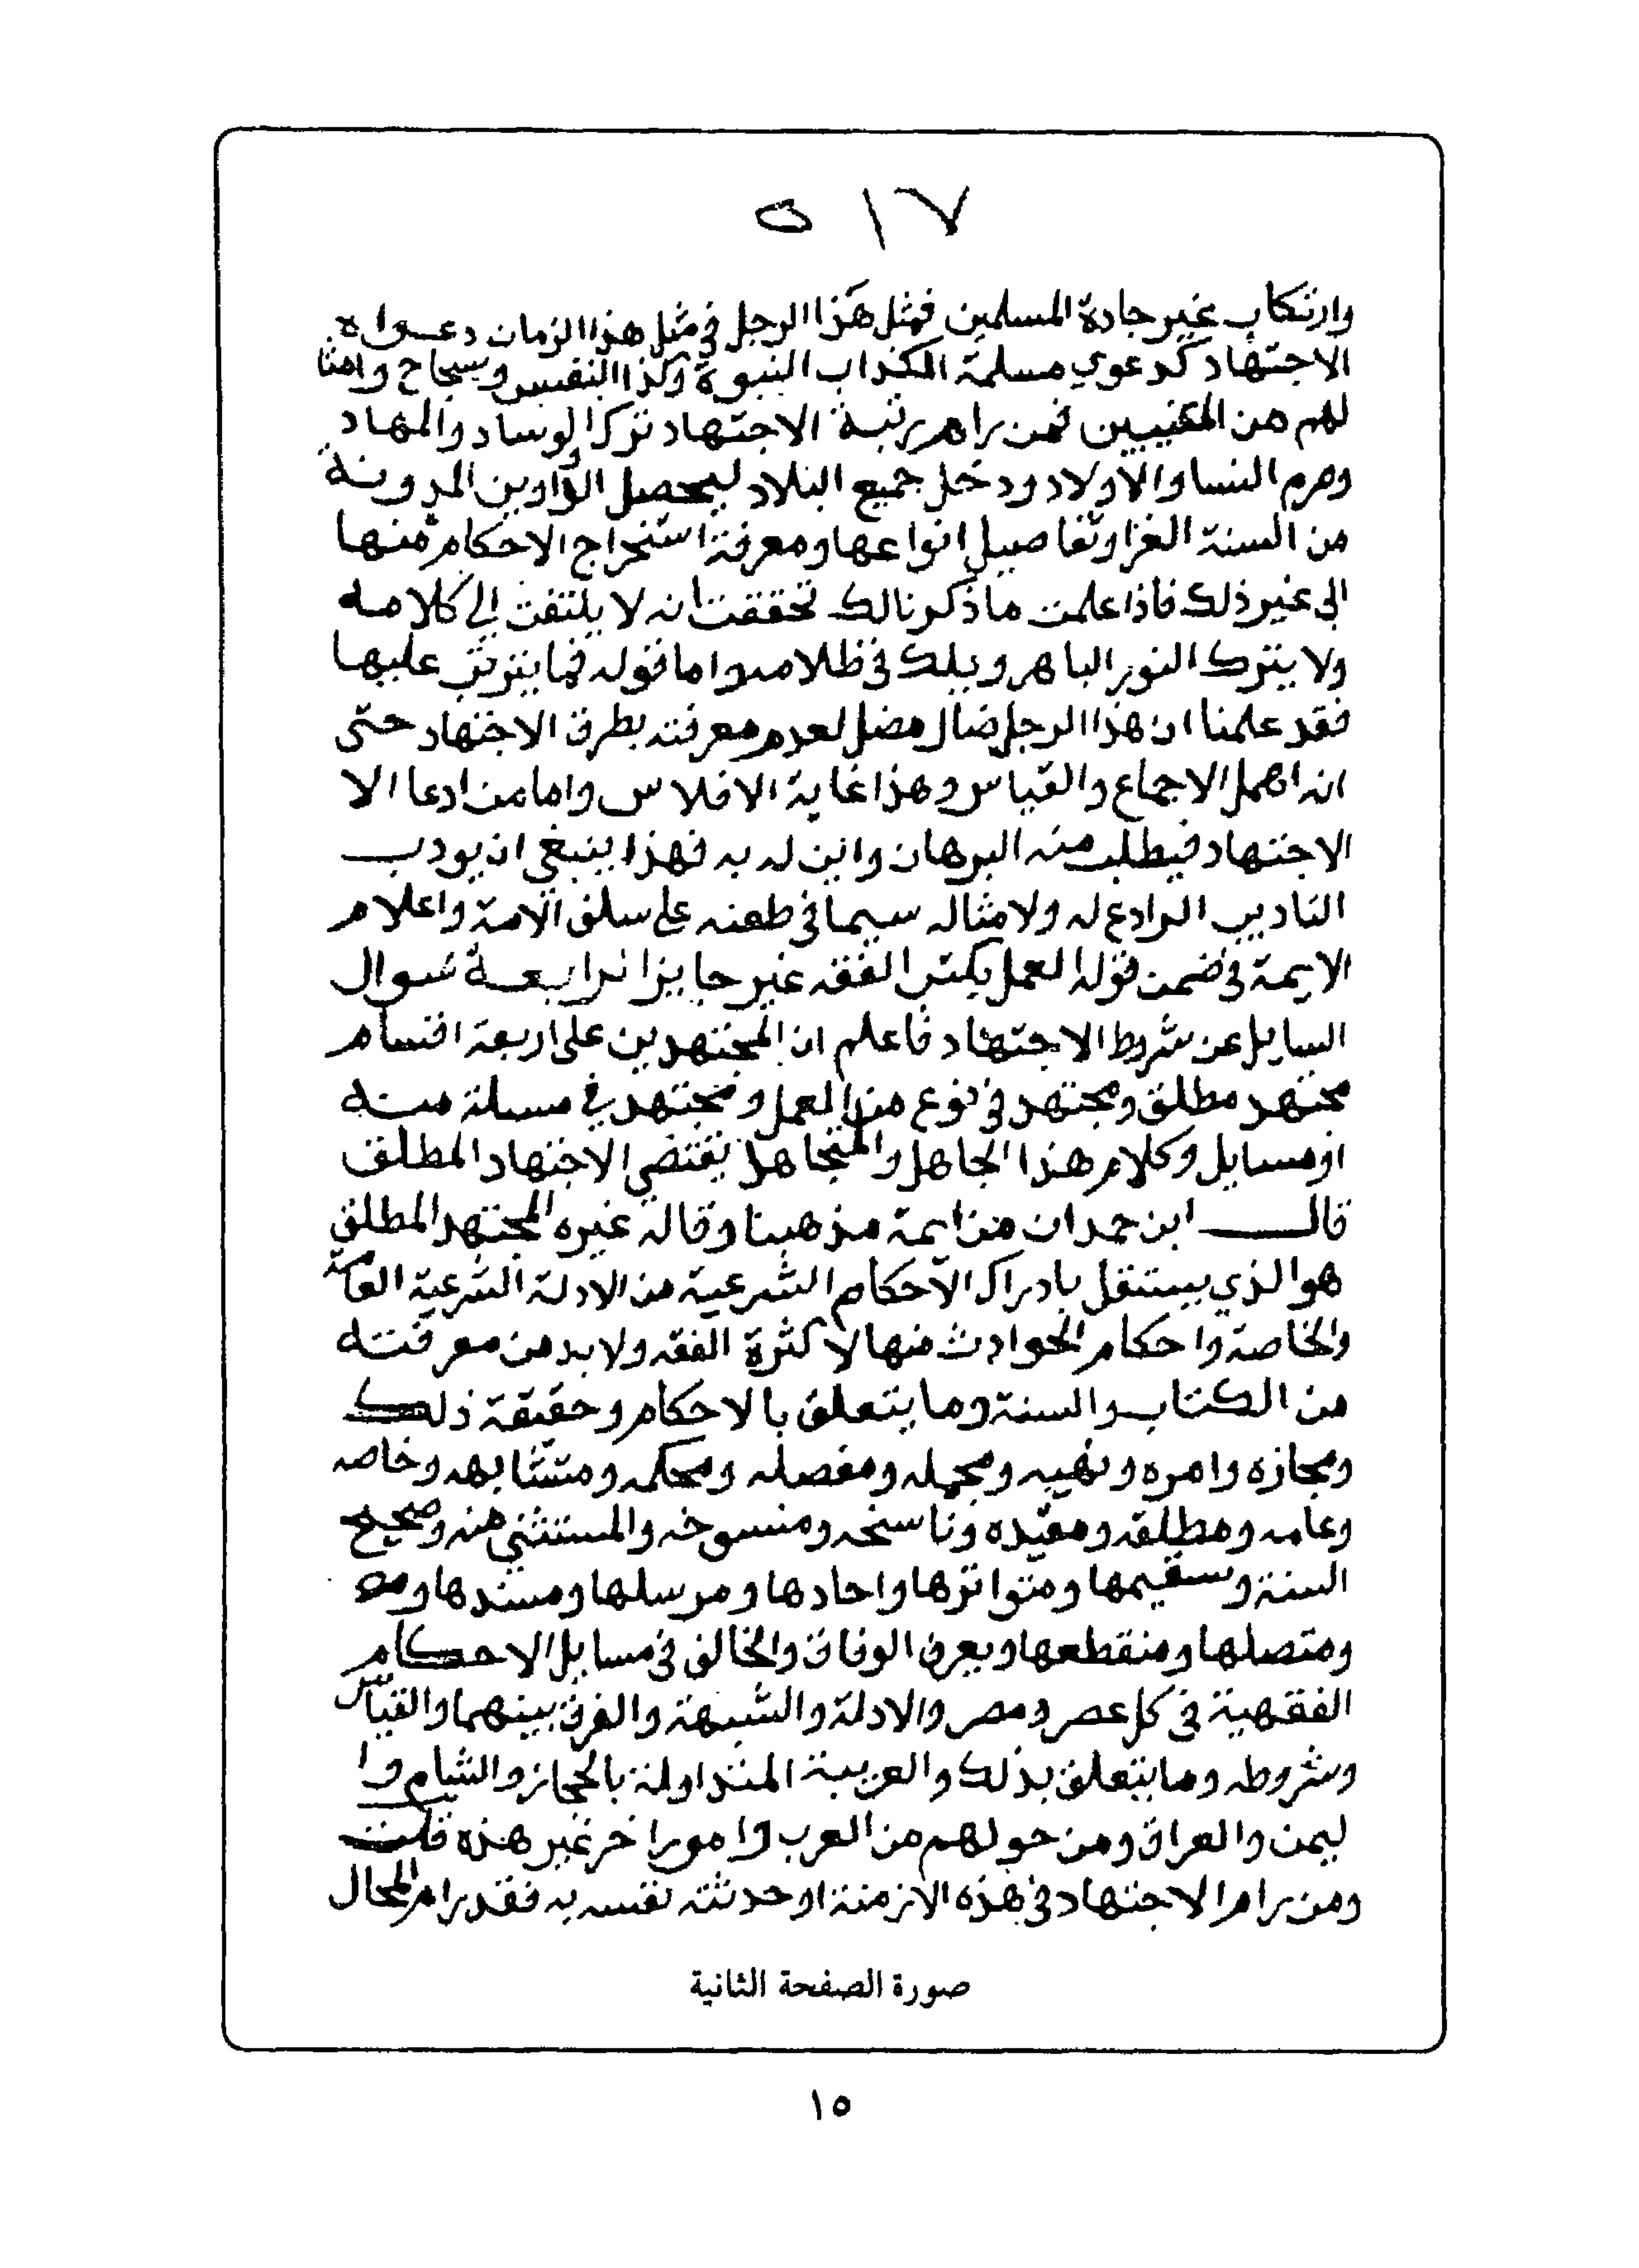 ٥١٧
وارتكاب غير جادة المسلمين فمثل هذا الرجل في مثل هذا الزمان دعواه
الاجتهاد كدعوي مسلمة الكذاب النبوة وكذا النفيس وسجاح وامثا
لهم من المتنبيين فمن رام رتبة الاجتهاد ترك الوساد والمهاد
وحرم النسا والاولاد ودخل جميع البلاد ليحصل الدواوين المدونة
من السنة الغرا وتفاصيل انواعها ومعرفة استخراج الاحكام منها
الى غير ذلك فاذا علمت ما ذكرنا لك تحققت انه لا يلتفت الي كلامه
ولا يترك النور الباهر ويلك في ظلامه واما قوله فما يترتب عليها
فقد علمنا ان هذا الرجل ضال مضل لعدم معرفته بطرق الاجتهاد حتى
انه اهمل الاجماع والقياس وهذا غاية الافلاس واما من ادعا الا
الاجتهاد فيطلب منه البرهان واين له به فهذا ينبغي ان يودب
التاديب الرادع له ولامثاله سيما في طعنه على سلف الامة واعلام
الايمة في ضمن قوله العمل بكتب الفقه غير جايز الرابعة سوال
السايل عن شروط الاجتهاد فاعلم ان المجتهدين على اربعة اقسام
مجتهد مطلق ومجتهد في نوع من العمل ومجتهد في مسيلة منه
او مسايل وكلام هذا الجاهل والمتجاهل يقتضي الاجتهاد المطلق
قال ابن حمدان من ايمة مذهبنا وقاله غيره المجتهد المطلق
هو الذي يستقل بادراك الاحكام الشرعية من الادلة الشرعية العامة
والخاصة واحكام الحوادث منها لا كثرة الفقه ولا بد من معرفته
من الكتاب والسنة وما يتعلق بالاحكام وحقيقة ذلك
ومجازه وامره ونهيه ومجمله ومفصله ومحكمه ومتشابهه وخاصه
وعامه ومطلقه ومقيده وناسخه ومنسوخه والمستثني منه وصحيح
السنة وسقيمها ومتواترها واحادها ومرسلها ومسندها
ومتصلها ومنقطعها ويعرف الوفاق والخالف في مسايل الاحكام
الفقهية في كل عصر ومصر والادلة والشبهة والفرق بينهما والقياس
وشروطه وما يتعلق بذلك والعربية المتداولة بالحجاز والشام وا
ليمن والعراق ومن حولهم من العرب وامورا خر غير هذه قلت
ومن رام الاجتهاد في هذه الازمنة او حدثته نفسه به فقد رام المحال
صورة الصفحة الثانية
١٥